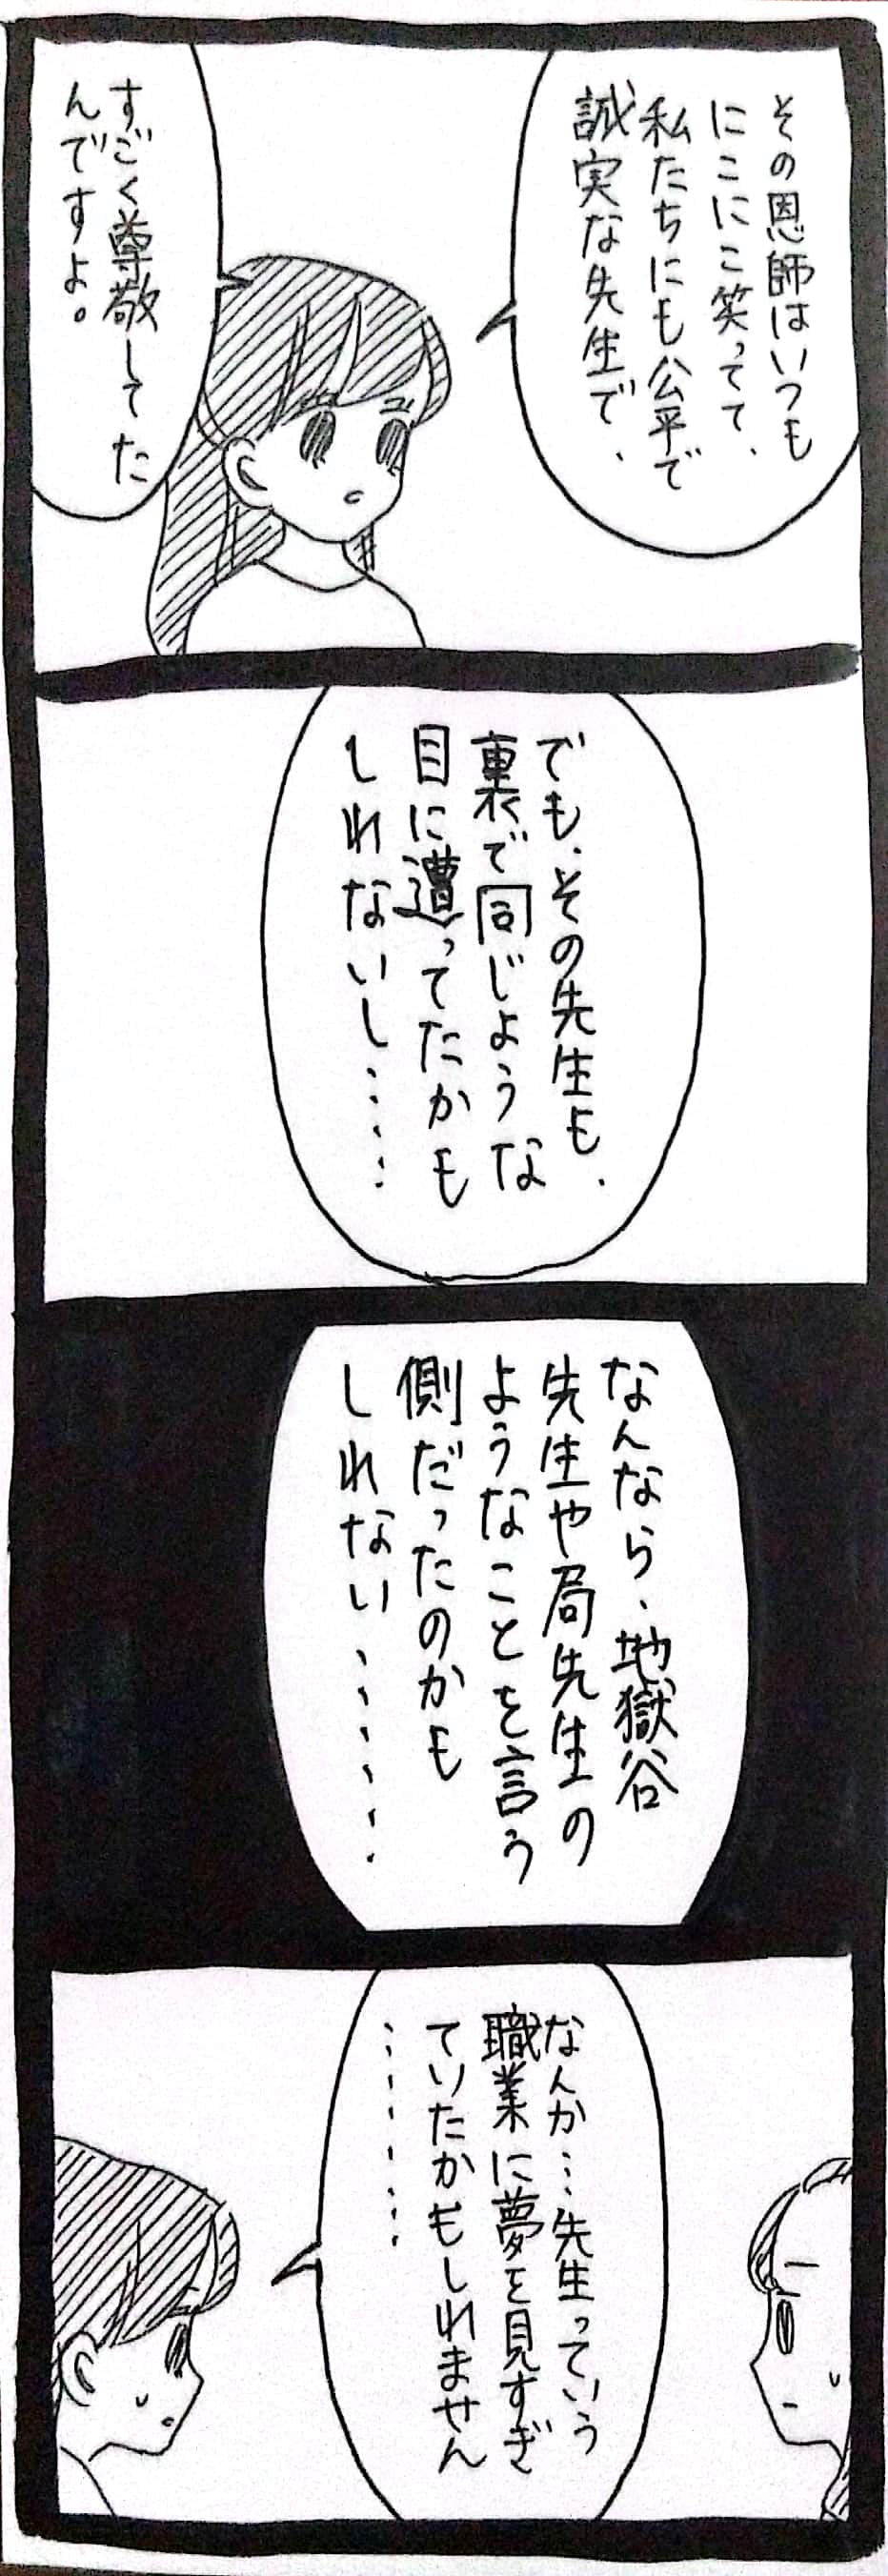 その恩師はいつも
にこにこ笑ってて、
私たちにも公平で
誠実な先生で、
すごく尊敬してた
んですよ。
でも、その先生も、
裏で同じような
目に遭ってたかも
しれないし……
なんなら、地獄谷
先生や局先生の
ようなことを言う
側だったのかも
しれない………
なんか…先生っていう
職業に夢を見すぎ
ていたかもしれません
………